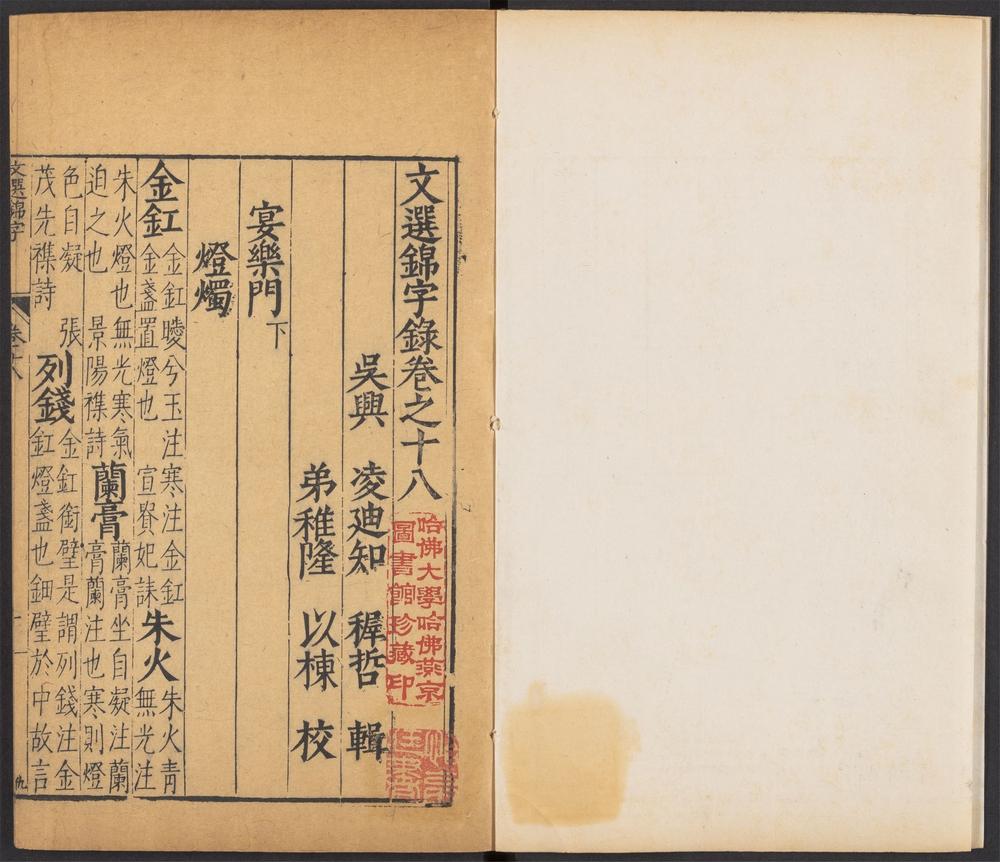 文選錦字錄卷之十八
哈佛大學哈佛燕京
圖書館珍藏印
吳興 凌迪知 穉哲 輯
弟稚隆 以棟 校
宴樂門下
燈燭
金釭 金釭曖兮玉注寒注金釭
金盞置燈也 宣貴妃誄 朱火 朱火青
無光注
朱火燈也無光寒氣
迫之也 景陽襍詩 蘭膏 蘭膏坐自凝注蘭
膏蘭注也寒則燈
色自凝 張
茂先襍詩 列錢 金釭銜璧是謂列錢注金
釭燈盞也鈿璧於中故言
文選錦字 卷十八